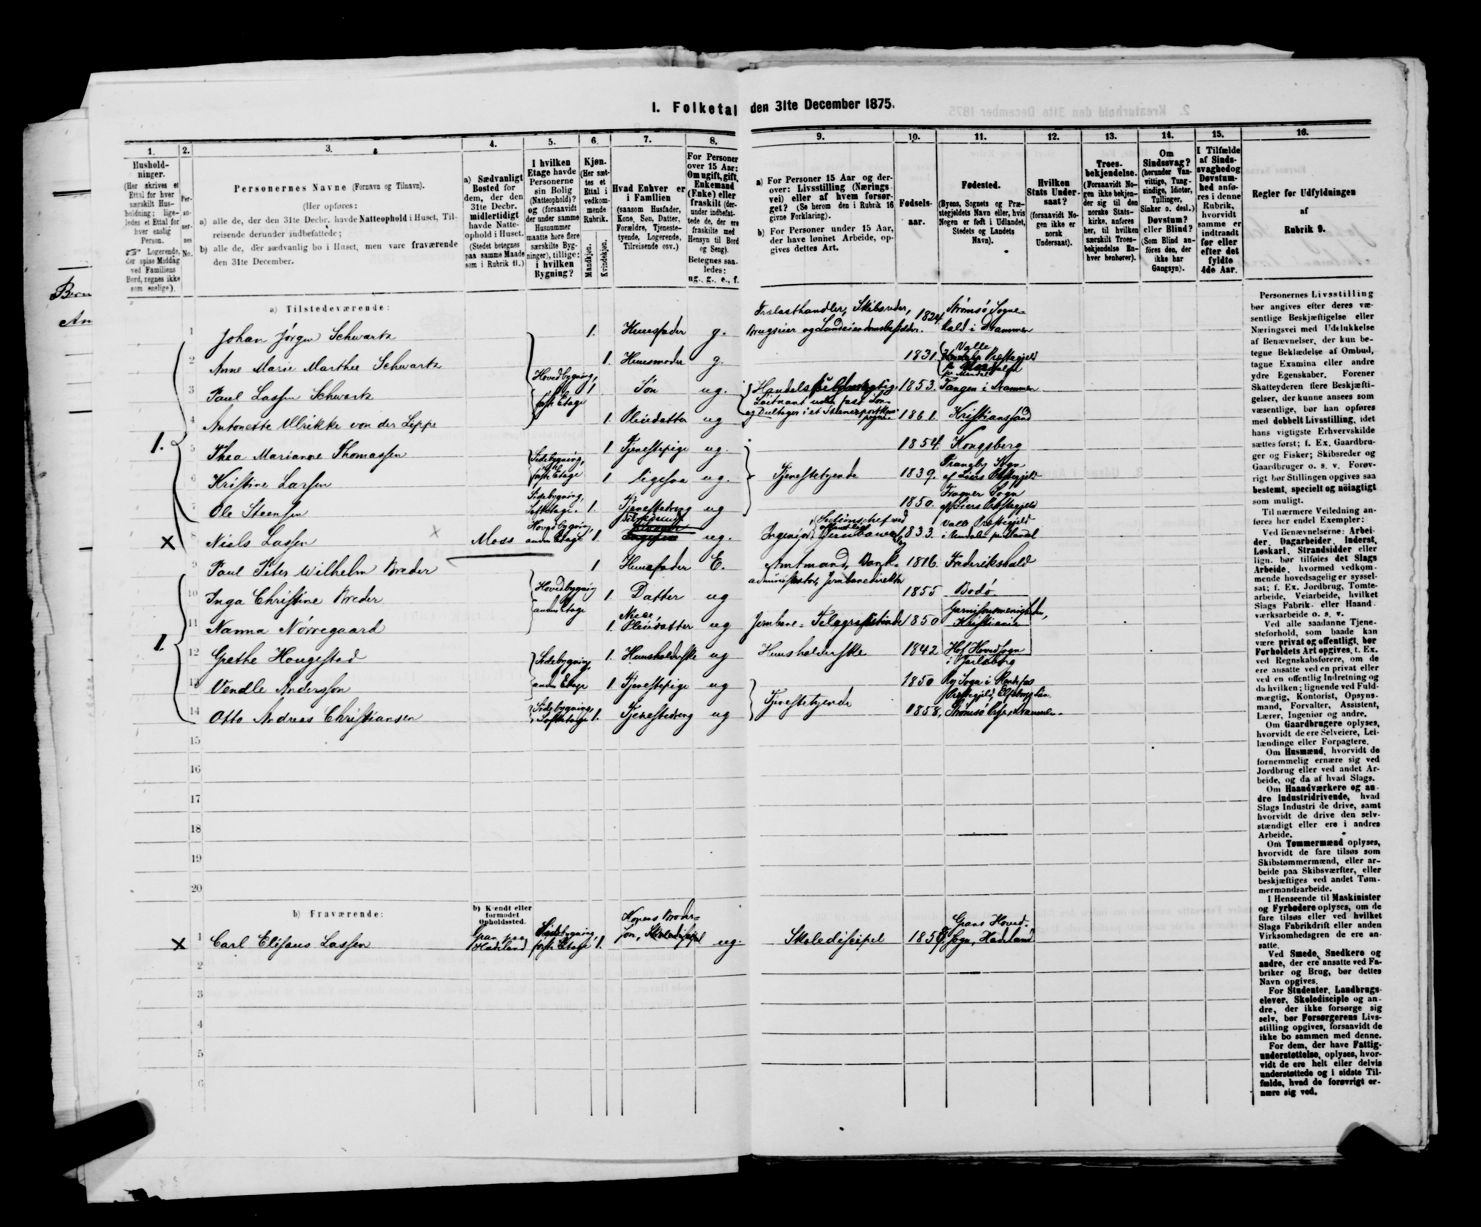 1. Folketal den 31te December 1875.
1.
Husholdninger.
(Her skrives et Ettal for hver særskilt Husholdning; ligeledes et Ettal for hver enslig Person.
Logerende, der spise Middag ved Familiens Bord, regnes ikke som enslige).
2.
3.
Personernes Navne (Fornavn og Tilnavn).
(Her opføres:
a) alle de, der den 31te Decbr. havde Natteophold i Huset, Tilreisende derunder indbefattede;
b) alle de, der sædvanlig bo i Huset, men vare fraværende den 31te December.
4.
a) Sædvanligt Bosted for dem, der den 31te Decbr. midlertidigt havde Natteophold i Huset.
(Stedet betegnes paa samme Maade som i Rubrik 11.)
5.
I hvilken Etage havde Personerne sin Bolig (Natteophold)? og (forsaavidt der under samme Husnummer maatte høre flere særskilte Bygninger), tillige: i hvilken Bygning?
6.
Kjøn.
(Her sættes et Ettal i vedkommende Rubrik.
Mandkjøn.
Kvindekjøn.
7.
Hvad Enhver er i Familien
(saasom Husfader, Kone, Søn, Datter, Forældre, Tjenestetyende, Logerende, Tilreisende osv.)
8.
For Personer over 15 Aar: Om ugift, gift, Enkemand (Enke) eller fraskilt (derunder indbefattede de, der ere fraskilte med Hensyn til Bord og Seng).
Betegnes saaledes: ug., g., e., f.
9.
a) For Personer 15 Aar og derover: Livsstilling (Næringsvei) eller af hvem forsørget? (Se herom den i Rubrik 16 givne Forklaring).
b) For Personer under 15 Aar, der have lønnet Arbeide, opgives dettes Art.
10.
Fødselsaar.
11.
Fødested.
(Byens, Sognets og Præstegjeldets Navn eller, hvis Nogen er født i Udlandet, Stedets og Landets Navn).
12.
Hvilken Stats Undersaat?
(forsaavidt Nogen ikke er norsk Undersaat).
13.
Troesbekjendelse.
(Forsaavidt Nogen ikke bekjender sig til den norske Statskirke, anføres her, til hvilken særskilt Troesbekjendelse Enhver henhører).
14.
Om Sindssvag? (herunder Vanvittige, Tungsindige, Idioter, Tullinger, Sinker o. desl.) Døvstum? eller Blind? (Som Blind anføres den, der ikke har Gangsyn).
15.
I Tilfælde af Sindssvaghed og Døvstumhed anføres i denne Rubrik, hvorvidt samme er indtraadt før eller efter det fyldte 4de Aar.
16.
Regler for Udfyldningen af Rubrik 9.
a) Tilstedeværende:
1 Johan Jørgen Schwartz 1. Huusfader g. Trælasthandler, Skibsreder, Brugseier og Landeiendomsbesidder. 1824 Strømsø Sognekald i Drammen
2 Anne Marie Marthee Schwartz 1. Huusmoder g. 1831
3 Paul Lassen Schwartz 1 Søn ug. 1853. Tangen i Drammen
4 Antonette Ulrikke von der Lippe 1. Pleiedatter ug 1861. Kristianssand
5 Thea Marianne Thomassen 1. Tjenestepige ug. 1854. Kongsberg
6 Kristine Larsen 1 ligesaa ug. Tjenestetyende 1839.
7 Ole Steensen 1 Tjenestedreng ug 1850.
8 Niels Lassen Moss 1. ug. 1833.
9 Paul Peter Wilhelm Breder 1 Huusfader E. Amtmand, 1816. Frederikshald
10 Inga Christine Breder 1. Datter ug 1855 Bodø
11 Nanna Nørregaard 1. Pleiedatter ug 1850
12 Grethe Hougestad 1. Huusholderske ug Huusholderske 1842 Hof Hovedsogn i Jarlsberg
13 Vendle Andersson 1 Tjenestepige ug 1850
14 Otto Andreas Christiansen 1. Tjenestedreng ug Tjenestetyende 1858.
15
16
17
18
19
20
b) Fraværende:
b) Kjendt eller formodet Opholdssted.
1 Carl Elisæus Lassen Gran paa Hadeland 1. Skoledisipel ug. Skoledisipel Grans Hovedsogn, Hadeland
2
3
4
5
6
Personernes Livsstilling bør angives efter deres væsentlige Beskjæftigelse eller Næringsvei med Udelukkelse af Benævnelser, der kun betegne Beklædelse af Ombud, tagne Examina eller andre ydre Egenskaber. Forener Skatteyderen flere Beskjæftigelser, der kunne ansees som væsentlige, bør han opføres med dobbelt Livsstilling, idet hans vigtigste Erhvervskilde sættes først; f. Ex. Gaardbruger og Fisker; Skibsreder og Gaardbruger o. s. v. Forøvrigt bør Stillingen opgives saa bestemt, specielt og nøiagtigt som muligt.
Til nærmere Veiledning anføres her endel Exempler:
Ved Benævnelserne: Arbeider, Dagarbeider, Inderst, Løskarl, Strandsidder eller lign. bør tilføies det Slags Arbeide, hvormed vedkommende hovedsagelig er sysselsat; f. Ex. Jordbrug, Tomtearbeide, Veiarbeide, hvilket Slags Fabrik- eller Haandværksarbeide o. s. v.
Ved alle saadanne Tjenesteforhold, som baade kan være privat og offentligt, bør Forholdets Art opgives, t. Ex. ved Regnskabsførere, om de ere ansatte ved en privat eller ved en offentlig Indretning og da hvilken; lignende ved Fuldmægtig, Kontorist, Opsynsmand, Forvalter, Assistent, Lærer, Ingeniør og andre.
Om Gaardbrugere oplyses, hvorvidt de ere Selveiere, Leilændinge eller Forpagtere.
Om Husmænd, hvorvidt de fornemmelig ernære sig ved Jordbrug eller ved andet Arbeide, og da af hvad Slags.
Om Haandværkere og andre industridrivende, hvad Slags Industri de drive, samt hvorvidt de drive den selvstændigt eller ere i andres Arbeide.
Om Tømmermænd oplyses, hvorvidt de fare tilsøs som Skibstømmermænd, eller arbeide paa Skibsværfter, eller beskjæftiges ved andet Tømmermandsarbeide.
I Henseende til Maskinister og Fyrbødere oplyses, om de fare tilsøs eller ved hvilket Slags Fabrikdrift eller anden Virksomhedsgren de ere ansatte.
Ved Smede, Snedkere og andre, der ere ansatte ved Fabriker og Brug, bør dettes Navn opgives.
For Studenter, Landbrugselever, Skoledisciple og andre, der ikke forsørge sig selv, bør Forsørgerens Livsstilling opgives, forsaavidt de ikke bo sammen med denne.
For dem, der have Fattigunderstøttelse, oplyses, hvorvidt de ere helt eller delvis understøttede og i sidste Tilfælde, hvad de forøvrigt ernære sig ved.